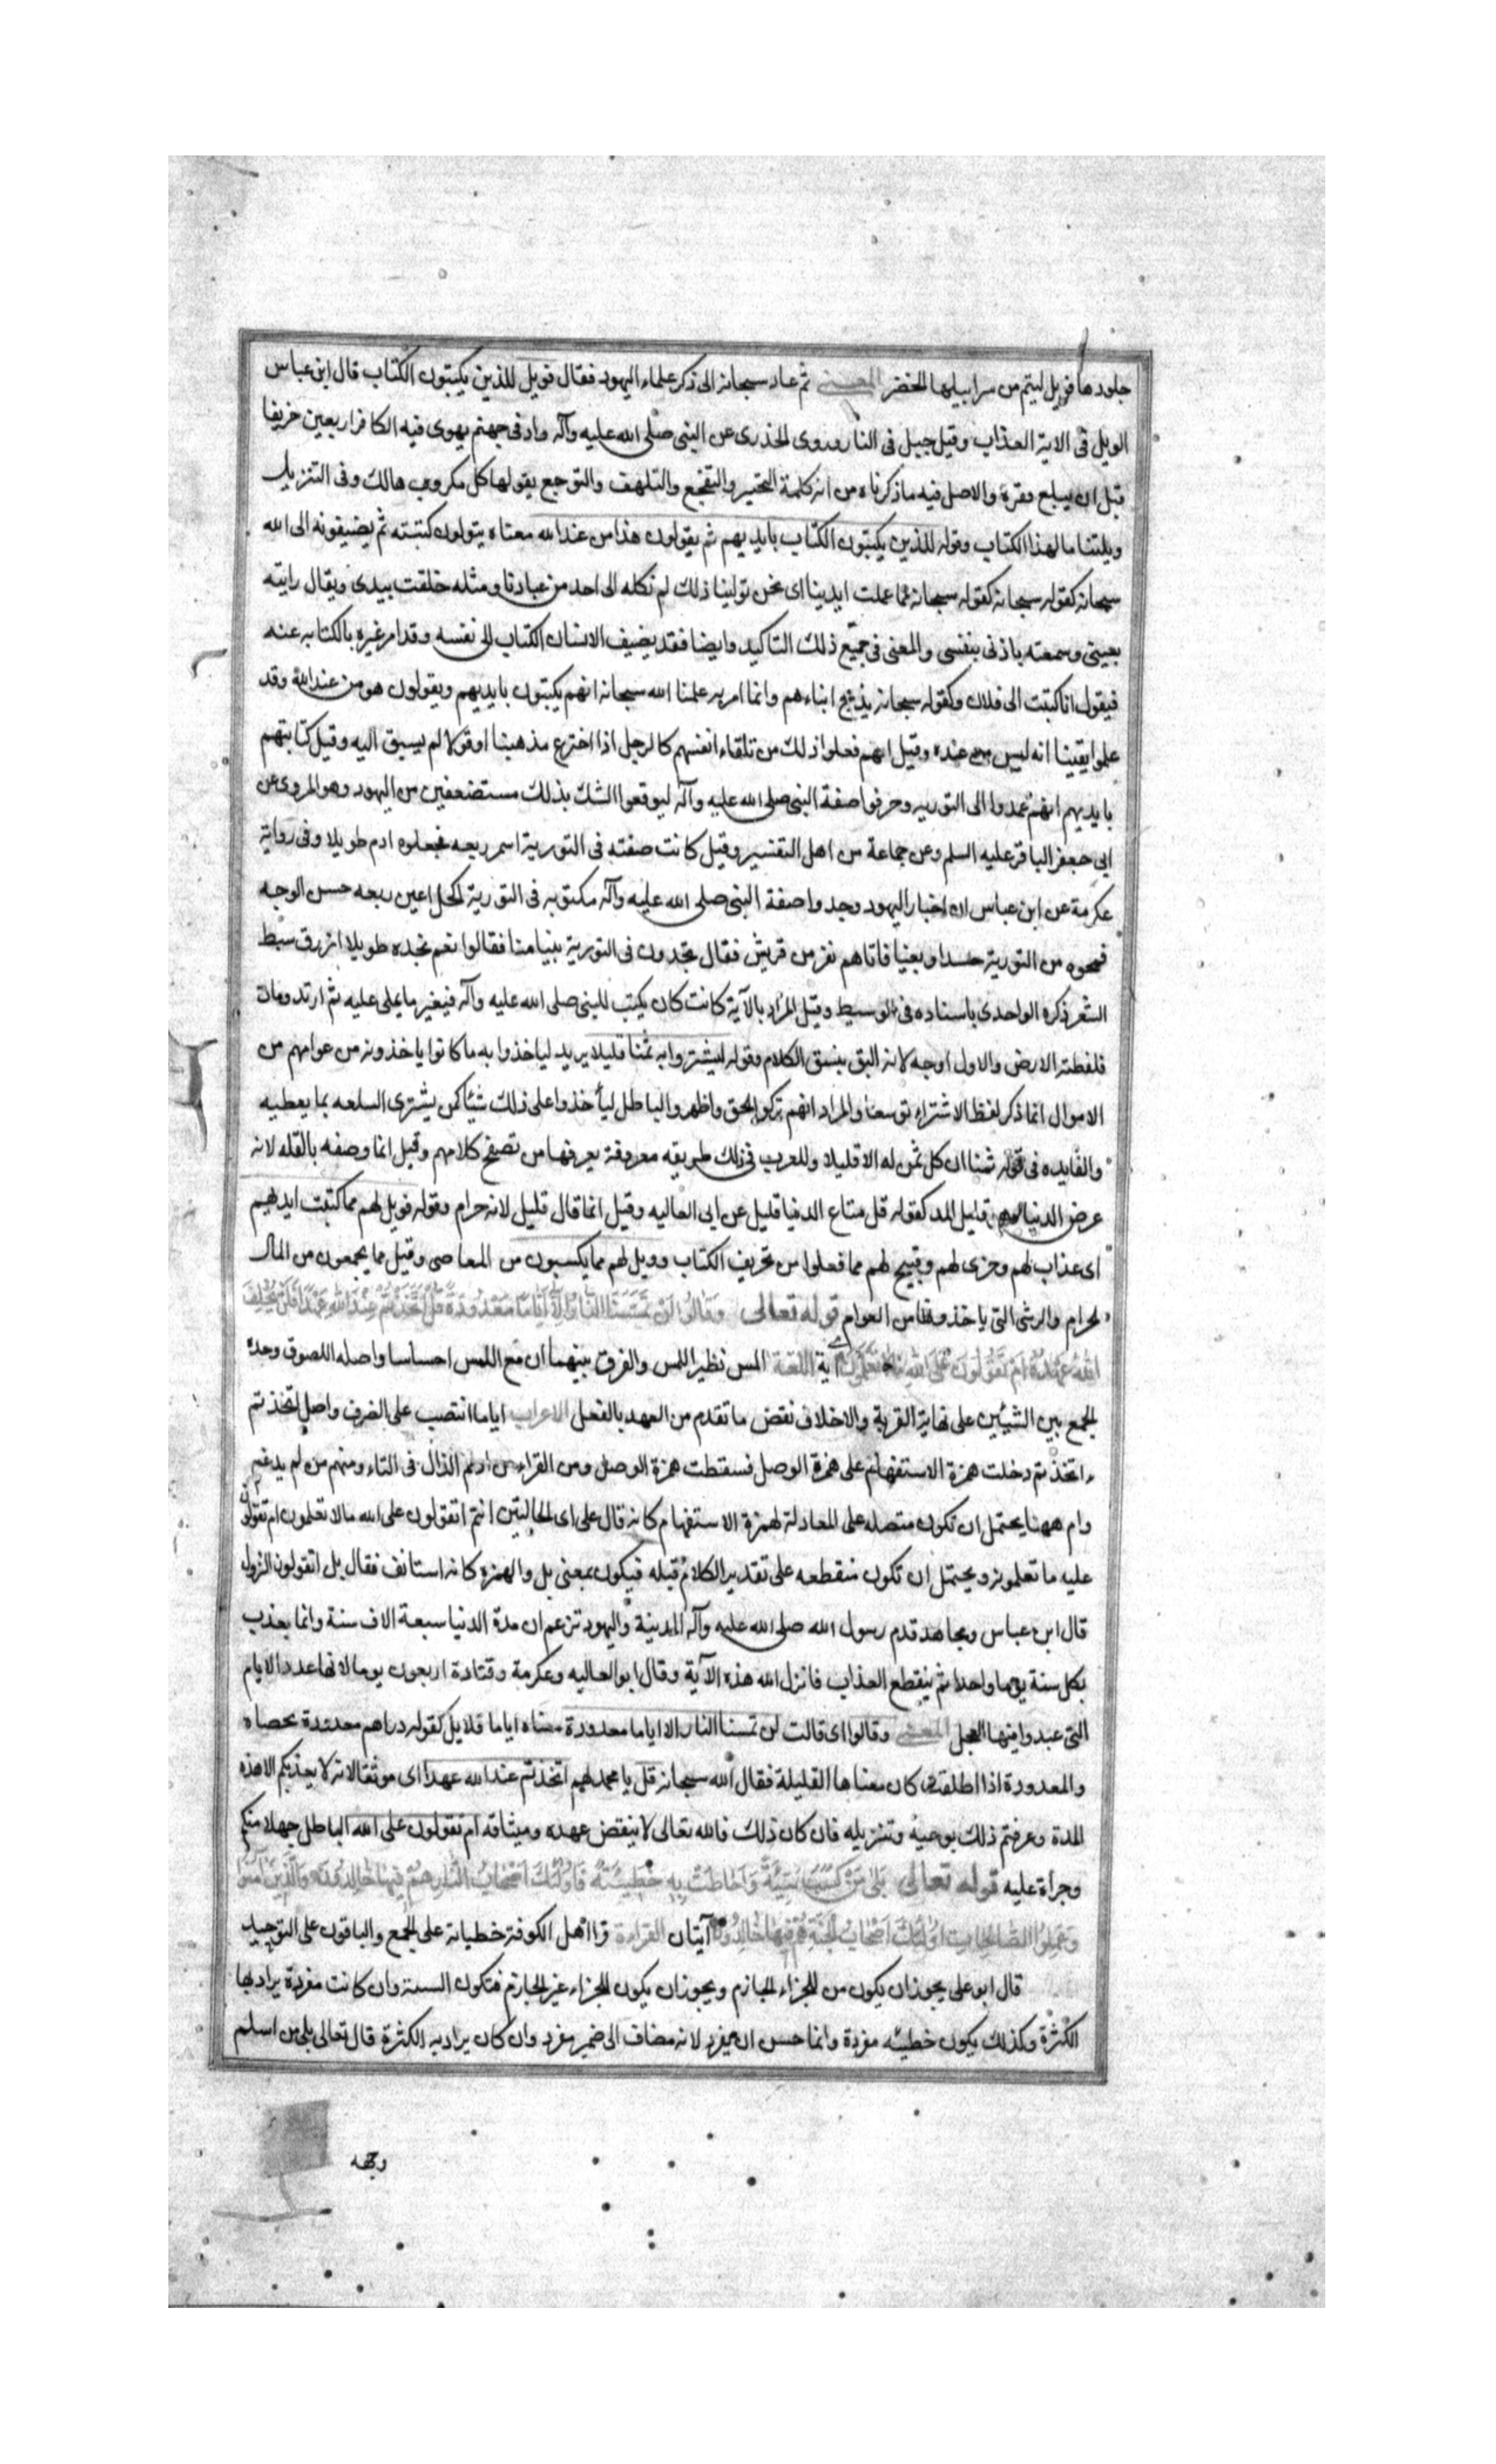 جلودها فويل ليتم من سرابيلها الخضر المعنى ثم عاد سبحانه الى ذكر علماء اليهود فقال فويل للذين يكتبون الكتاب قال ابن عباس
الويل فى الاية العذاب وقيل جبل فى النار وروى الخذرى عن النبى صلى الله عليه وآله واد فى جهنم يهوى فيه الكافر اربعين خريفا
قبل ان يبلغ مقره والاصل فيه ما ذكرناه من انه كلمة التحسر والتفجع والتلهف والتوجع يقولها كل مكروب هالك وفى التنزيل
ويلتنا ما لهذا الكتاب وقوله للذين يكتبون الكتاب بايديهم ثم يقولون هذا من عند الله معناه يتولون كتبته ثم يضيفونه الى الله
سبحانه كقوله سبحانه كقوله سبحانه مما عملت ايدينا اى نحن تولينا ذلك لم نكله الى احد من عبادنا ومثله خلقت بيدى ويقال رايته
بعينى وسمعته باذنى بنفسى والمعنى فى جميع ذلك التاكيد وايضا فقد يضيف الانسان الكتاب الى نفسه وقد امر غيره بالكتابه عنه
فيقول انا كتبت الى فلان وكقوله سبحانه يذبح ابناءهم وانما امر به علمنا الله سبحانه انهم يكتبون بايديهم ويقولون هو من عند الله وقد
علموا يقينا انه ليس من عنده وقيل انهم فعلوا ذلك من تلقاء انفسهم كالرجل اذا اخترع مذهبنا اوقولا لم يسبق اليه وقيل كتابتهم
بايديهم انهم عمدوا الى التوريه وحرفوا صفة النبى صلى الله عليه وآله ليوقعوا الشك بذلك مستضعفين من اليهود وهو المروى عن
ابى جعفر الباقر عليه السلم وعن جماعة من اهل التفسير وقيل كانت صفته فى التورية اسمر ربعه فجعلوه ادم طويلا وفى رواية
عكرمة عن ابن عباس ان احبار اليهود وجدوا صفة النبى صلى الله عليه وآله مكتوبه فى التورية اكحل اعين ربعه حسن الوجه
فمحوه من التورية حسدا وبغيا فاتاهم نفر من قريش فقال تجدون فى التورية نبيا منا فقالوا نعم نجده طويلا ازرق سبط
الشعر ذكره الواحدى باسناده فى الوسيط وقيل المراد بالآية كانت كان يكتب للنبى صلى الله عليه وآله فيغير ما يملى عليه ثم ارتد ومات
فلفظته الارض والاول اوجه لانه اليق بنسق الكلام وقوله ليشتروا به ثمنا قليلا يريد لياخذوا به ما كانوا ياخذونه من عوامهم من
الاموال انما ذكر لفظ الاشتراء توسعا والمراد انهم تركوا الحق واظهروا الباطل لياخذوا على ذلك شيئا كمن يشترى السلعه بما يعطيه
والفايده فى قوله ثمنا ان كل ثمن له الا قليلا وللعرب فى ذلك طريقه معروفة يعرفها من تصفح كلامهم وقيل انما وصفه بالقله لانه
عرض الدنيا قليل المد كقوله قل متاع الدنيا قليل عن ابى العاليه وقيل انما قال قليل لانه حرام وقوله فويل لهم مما كتبت ايديهم
اى عذاب لهم وخزى لهم وقبيح لهم مما فعلوا من تحريف الكتاب وويل لهم مما يكسبون من المعاصى وقيل مما يجمعون من المال
الحرام والرشى التى ياخذونها من العوام قوله تعالى وَقَالُوا لَنْ تَمَسَّنَا النَّارُ اِلَّا اَيَّامًا مَعْدُودَةً قُلْ اَتَّخَذْتُمْ عِنْدَ اللهِ عَهْدًا فَلَنْ يُخْلِفَ
اللهُ عَهْدَهُ اَمْ تَقُولُونَ عَلَى اللهِ مَا لَا تَعْلَمُونَ اية اللغة المس نظير اللمس والفرق بينهما ان مع اللمس احساسا واصله اللصوق وحده
الجمع بين الشيئين على نهاية القربة والاخلاف نقض ما تقدم من العهد بالفعل الاعراب اياما انتصب على الظرف واصل اتخذتم
ءاتخذتم دخلت همزة الاستفهام على همزة الوصل فسقطت همزة الوصل ومن القراء من ادغم الذال فى التاء ومنهم من لم يدغم
وام ههنا يحتمل ان تكون متصله على المعادلة لهمزة الاستفهام كانه قال على اى الحالتين انتم اتقولون على الله مالا تعلمون ام تقولون
عليه ما تعلمونه ويحتمل ان تكون منقطعه على تقدير الكلام قبله فيكون بمعنى بل والهمزه كانه استانف فقال بل اتقولون النزول
قال ابن عباس ومجاهد قدم رسول الله صلى الله عليه وآله المدينة واليهود تزعم ان مدة الدنيا سبعة الاف سنة وانما يعذب
بكل سنة يوما واحدا ثم ينقطع العذاب فانزل الله هذه الآية وقال ابو العاليه وعكرمة وقتادة اربعون يوما لانها عدد الايام
التى عبدوا فيها العجل المعنى وقالوا اى قالت لن تمسنا النار الا اياما معدودة معناه اياما قلايل كقوله دراهم معدودة بحصاه
والمعدودة اذا اطلقت كان معناها القليلة فقال الله سبحانه قل يا محمد لهم اتخذتم عند الله عهدا اى موثقا لانه لا يعذبكم الا هذه
المدة وعرفتم ذلك بوحيه وتنزيله فان كان ذلك فالله تعالى لا ينقض عهده وميثاقه ام تقولون على الله الباطل جهلا منكم
وجرأة عليه قوله تعالى بَلٰى مَنْ كَسَبَ سَيِّئَةً وَاَحَاطَتْ بِهِ خَطِيئَتُهُ فَاُولٰئِكَ اَصْحَابُ النَّارِ هُمْ فِيهَا خَالِدُونَ وَالَّذِينَ آمَنُوا
وَعَمِلُوا الصَّالِحَاتِ اُولٰئِكَ اَصْحَابُ الْجَنَّةِ هُمْ فِيهَا خَالِدُونَ آيتان القراءة قرا اهل الكوفة خطياته على الجمع والباقون على التوحيد
قال ابو على يجوز ان يكون من للجزاء الجازم ويجوز ان يكون للجزاء غير الجازم فتكون السيئة وان كانت مفردة يراد بها
الكثرة وكذلك يكون خطيئه مفردة وانما حسن ان يفرد لانه مضاف الى ضمير مفرد وان كان يراد به الكثرة قال تعالى بلى من اسلم
وجهه